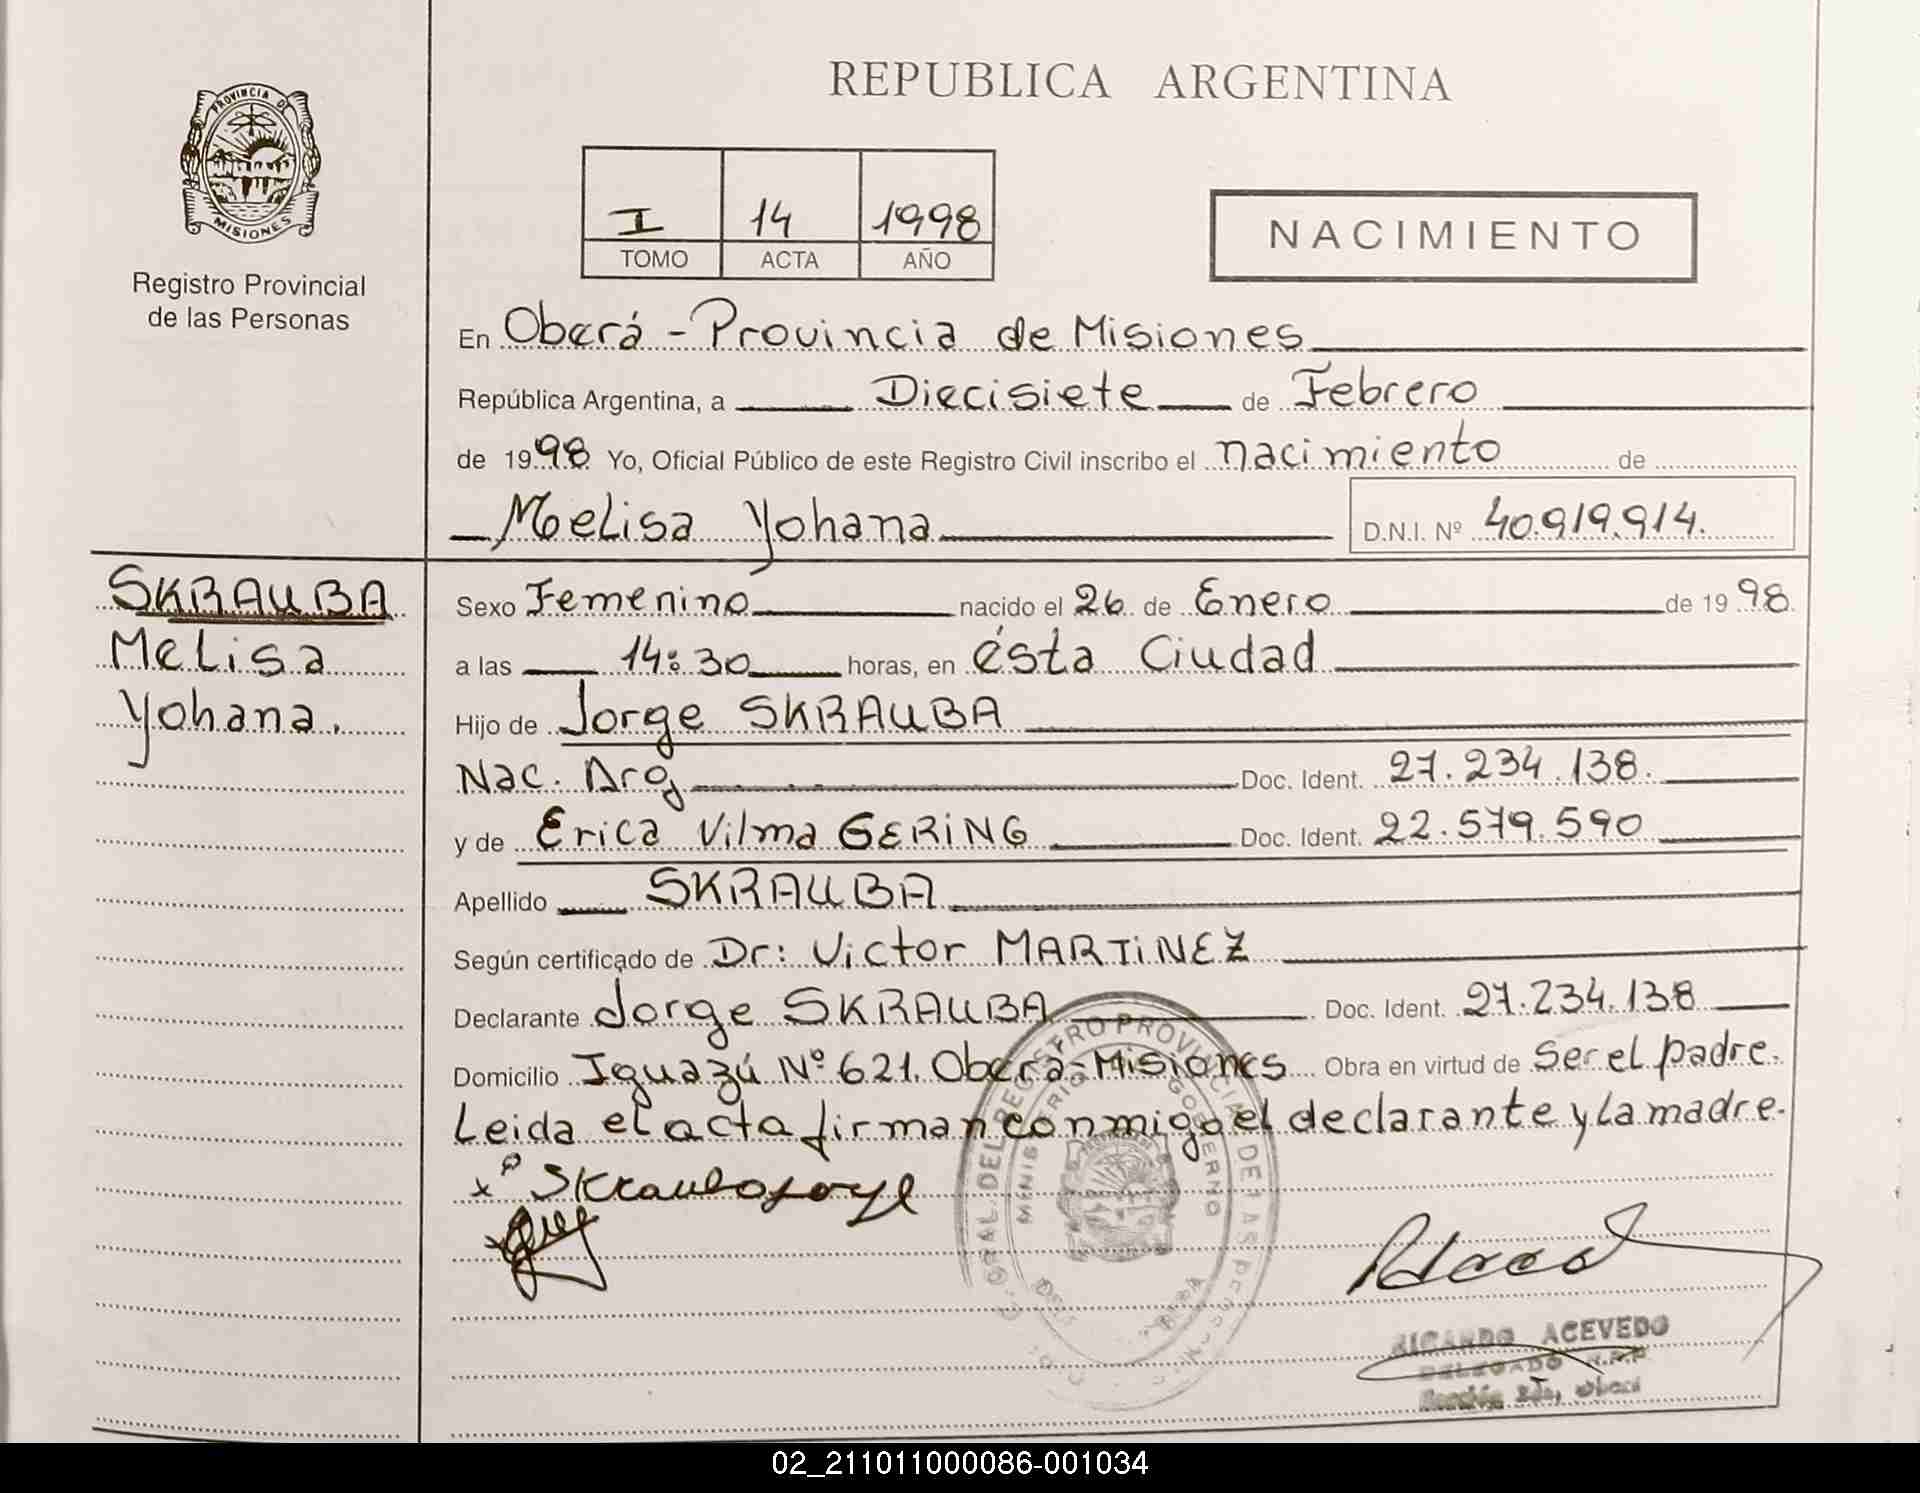 REPUBLICA ARGENTINA
PROVINCIA DE
MISIONES
Registro Provincial
de las Personas
I 14 1998
TOMO ACTA AÑO
NACIMIENTO
En Oberá - Provincia de Misiones
República Argentina, a Diecisiete de Febrero
de 1998 Yo, Oficial Público de este Registro Civil inscribo el nacimiento de
Melisa Yohana D.N.I. Nº 40.919.914.
SKRAUBA
Melisa
Yohana.
Sexo Femenino nacido el 26 de Enero de 1998.
a las 14:30 horas, en ésta Ciudad
Hijo de Jorge SKRAUBA
Nac. Arg Doc. Ident. 27.234.138.
y de Erica Vilma GERING Doc. Ident. 22.579.590
Apellido SKRAUBA
Según certificado de Dr: Victor MARTiNEZ
Declarante Jorge SKRAUBA Doc. Ident. 27.234.138
Domicilio Iguazú Nº 621. Oberá-Misiones Obra en virtud de Ser el padre.
Leida el acta firman conmigo el declarante y la madre.
GRAL. DEL REGISTRO PROVINCIAL DE LAS PERSONAS
MINISTERIO GOBIERNO
RICARDO ACEVEDO
DELEGADO R.P.P.
Sección 2da, Oberá
02_211011000086-001034